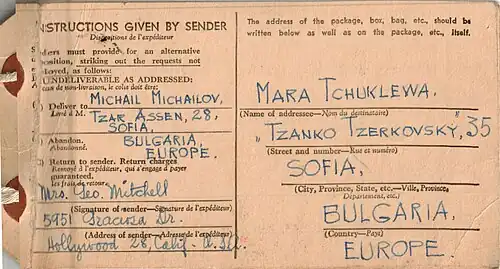 INSTRUCTIONS GIVEN BY SENDER
Dispositions de l'expéditeur
must provide for an alternative
striking out the requests not
as follows:
UNDELIVERABLE AS ADDRESSED:
cas de non-livraison, le colis doit être:
Deliver to MICHAIL MICHAILOV,
Livré à M. TZAR ASSEN, 28,
SOFIA,
Abandon. BULGARIA,
Abandonné. EUROPE.
Return to sender. Return charges
Renvoyé à l'expéditeur, qui s'engage à payer
guaranteed.
les frais de retour.
Mrs. Geo. Mitchell
(Signature of sender—Signature de l'expéditeur)
5951 Graciosa Dr.
(Address of sender—Adresse de l'expéditeur)
Hollywood 28, Calif.
The address of the package, box, bag, etc., should be
written below as well as on the package, etc., itself.
MARA TCHUKLEWA,
(Name of addressee—Nom du destinataire)
"TZANKO TZERKOVSKY," 35
(Street and number—Rue et numéro)
SOFIA,
(City, Province, State, etc.—Ville, Province,
Département, etc.)
BULGARIA,
(Country—Pays)
EUROPE.